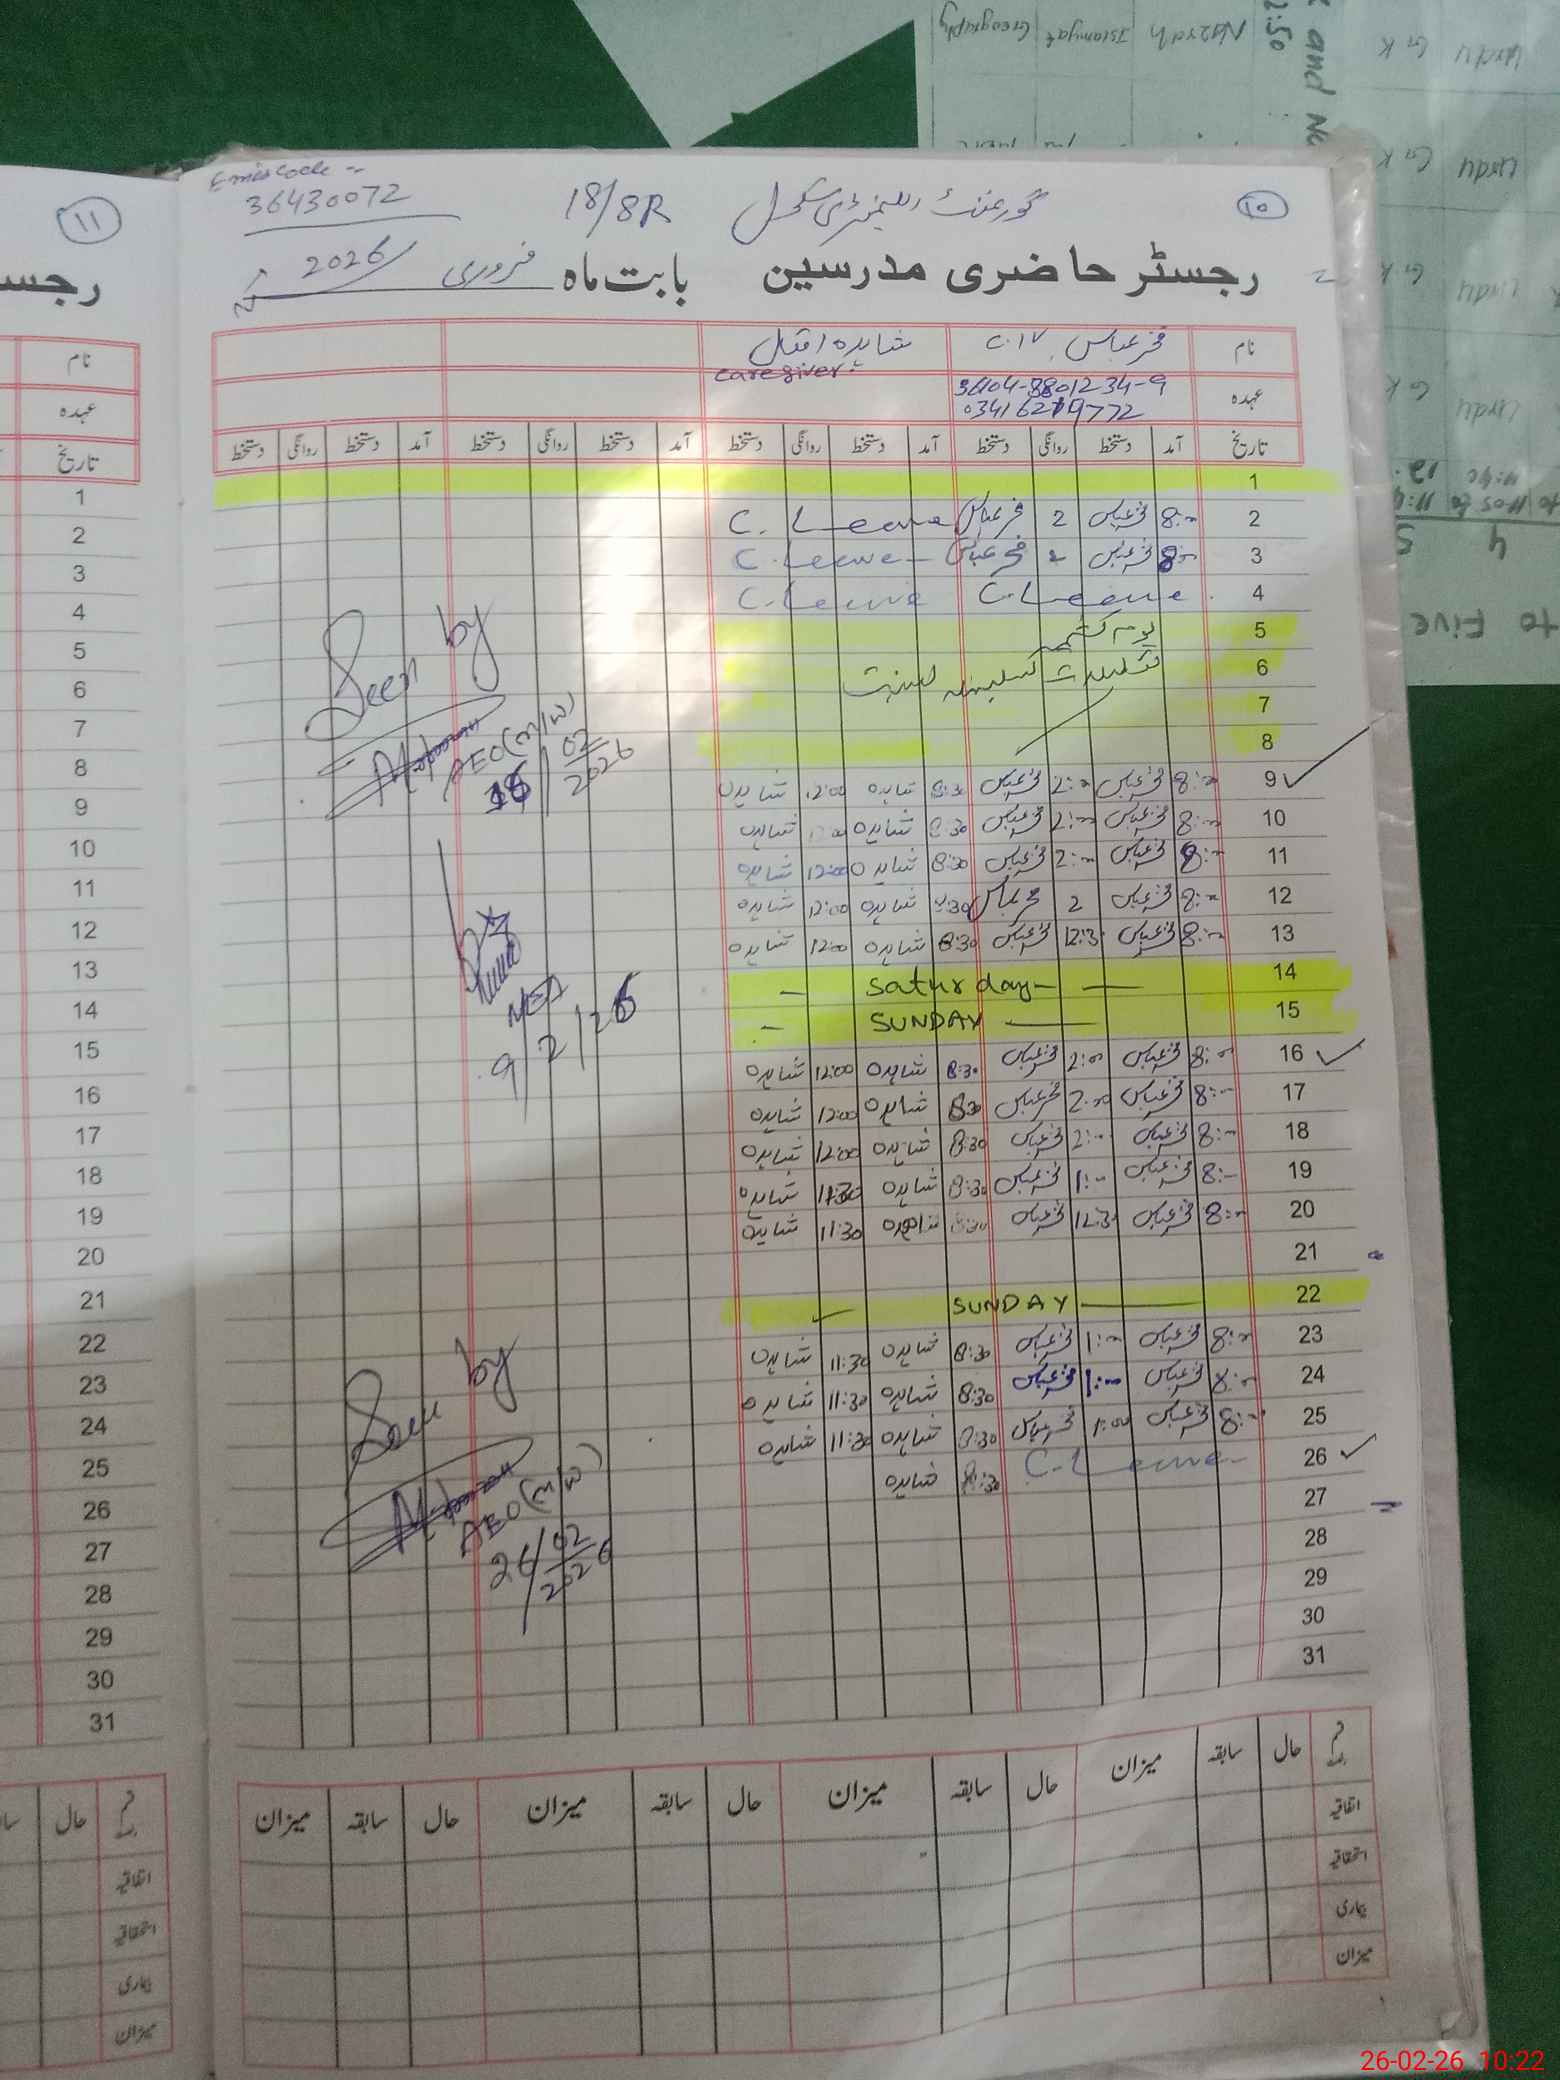 Emiscode --
36430072
18/8R
گورنمنٹ ایلیمنٹری سکول
۱۰
رجسٹر حاضری مدرسین بابت ماہ فروری 2026
نام فخر عباس C.IV شاہدہ اقبال
caregiver
عہدہ
0341
تاریخ آمد دستخط روانگی دستخط آمد دستخط روانگی دستخط آمد دستخط روانگی دستخط آمد دستخط روانگی دستخط
1
2 8:00 فخر عباس 2 فخر عباس C. Leave
3 8:00 فخر عباس 2 فخر عباس C. Leave
4 C. Leave C. Leave
5 یوم کشمیر
6 تعطیلات
7
8
9 8:00 فخر عباس 2:00 فخر عباس 8:30 شاہدہ 12:00 شاہدہ
10 8:00 فخر عباس 2:00 فخر عباس 8:30 شاہدہ شاہدہ
11 8:00 فخر عباس 2:00 فخر عباس 8:30 شاہدہ 12:00 شاہدہ
12 8:00 فخر عباس 2 فخر عباس 8:30 شاہدہ 12:00 شاہدہ
13 8:00 فخر عباس 12:30 فخر عباس 8:30 شاہدہ 12:00 شاہدہ
14 Saturday
15 SUNDAY
16 8:00 فخر عباس 2:00 فخر عباس 8:30 شاہدہ 12:00 شاہدہ
17 8:00 فخر عباس 2:00 فخر عباس 8:30 شاہدہ 12:00 شاہدہ
18 8:00 فخر عباس 2:00 فخر عباس 8:30 شاہدہ 12:00 شاہدہ
19 8:00 فخر عباس 1:00 فخر عباس 8:30 شاہدہ 11:30 شاہدہ
20 8:00 فخر عباس 12:30 فخر عباس 8:30 شاہدہ 11:30 شاہدہ
21
22 SUNDAY
23 8:00 فخر عباس 1:00 فخر عباس 8:30 شاہدہ 11:30 شاہدہ
24 8:00 فخر عباس 1:00 فخر عباس 8:30 شاہدہ 11:30 شاہدہ
25 8:00 فخر عباس 1:00 فخر عباس 8:30 شاہدہ 11:30 شاہدہ
26 C. Leave 8:30 شاہدہ
27
28
29
30
31
Seen by
AEO (m/w)
02
2026
MEA
9/2/26
Seen by
AEO (m/w)
26/02
2026
حال سابقہ میزان حال سابقہ میزان حال سابقہ میزان
اتفاقیہ
استحقاقیہ
بیماری
میزان
۱۱
رجسـ
نام
عہدہ
تاریخ
1
2
3
4
5
6
7
8
9
10
11
12
13
14
15
16
17
18
19
20
21
22
23
24
25
26
27
28
29
30
31
حال
اتفاقیہ
استحقاقیہ
بیماری
میزان
Geography Islamyat Nazrah
and
2:50
Urdu G.K
Urdu G.K
Urdu G.K
Urdu G.K
11:40
4 5
to Five
26-02-26 10:22